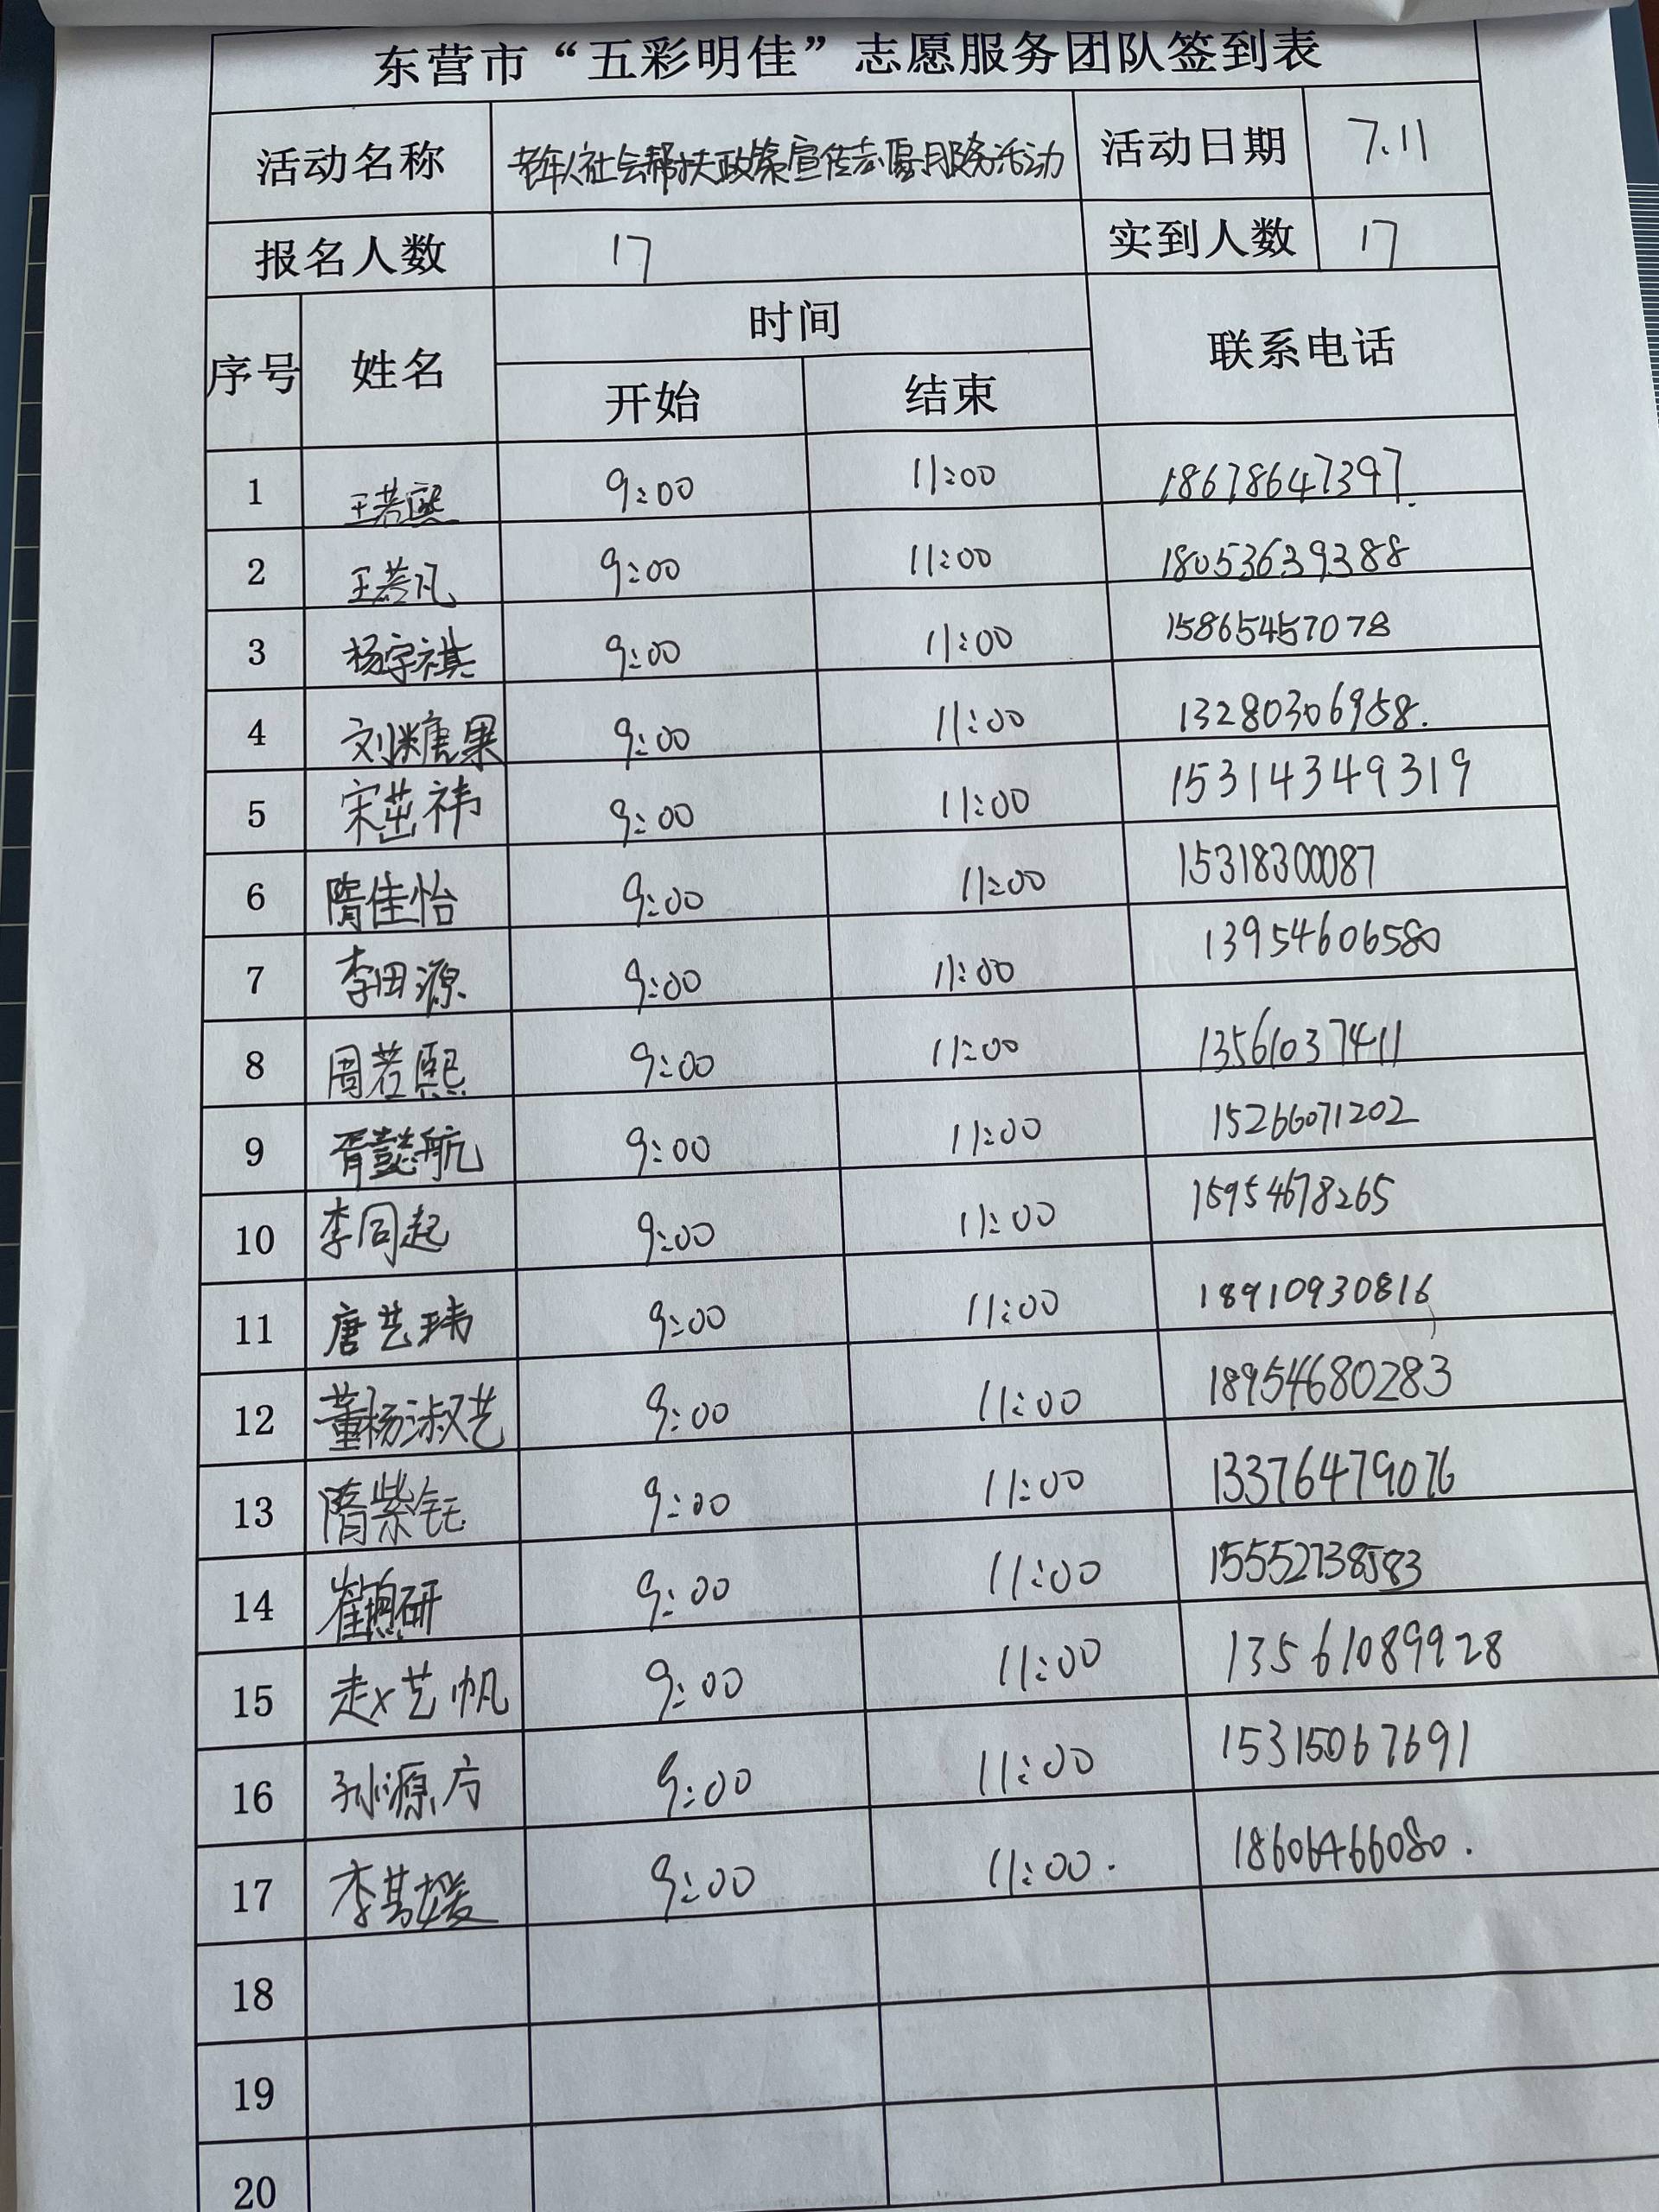 东营市“五彩明佳”志愿服务团队签到表
活动名称 老年人社会帮扶政策宣传志愿服务活动 活动日期 7.11
报名人数 17 实到人数 17
序号 姓名 时间 联系电话
开始 结束
1 王若熙 9:00 11:00 18678647397.
2 王若凡 9:00 11:00 18053639388
3 杨宇祺 9:00 11:00 15865457078
4 刘糖果 9:00 11:00 13280306958.
5 宋茁祎 9:00 11:00 15314349319
6 隋佳怡 9:00 11:00 15318300087
7 李田源 9:00 11:00 13954606580
8 周若熙 9:00 11:00 13561037411
9 胥懿航 9:00 11:00 15266071202
10 李同起 9:00 11:00 15954678265
11 唐艺玮 9:00 11:00 18910930816
12 董杨淑艺 9:00 11:00 18954680283
13 隋紫钰 9:00 11:00 13376479076
14 崔 研 9:00 11:00 15552738583
15 赵艺帆 9:00 11:00 13561089928
16 孙源方 9:00 11:00 15315067691
17 李 媛 9:00 11:00. 18606466080.
18
19
20